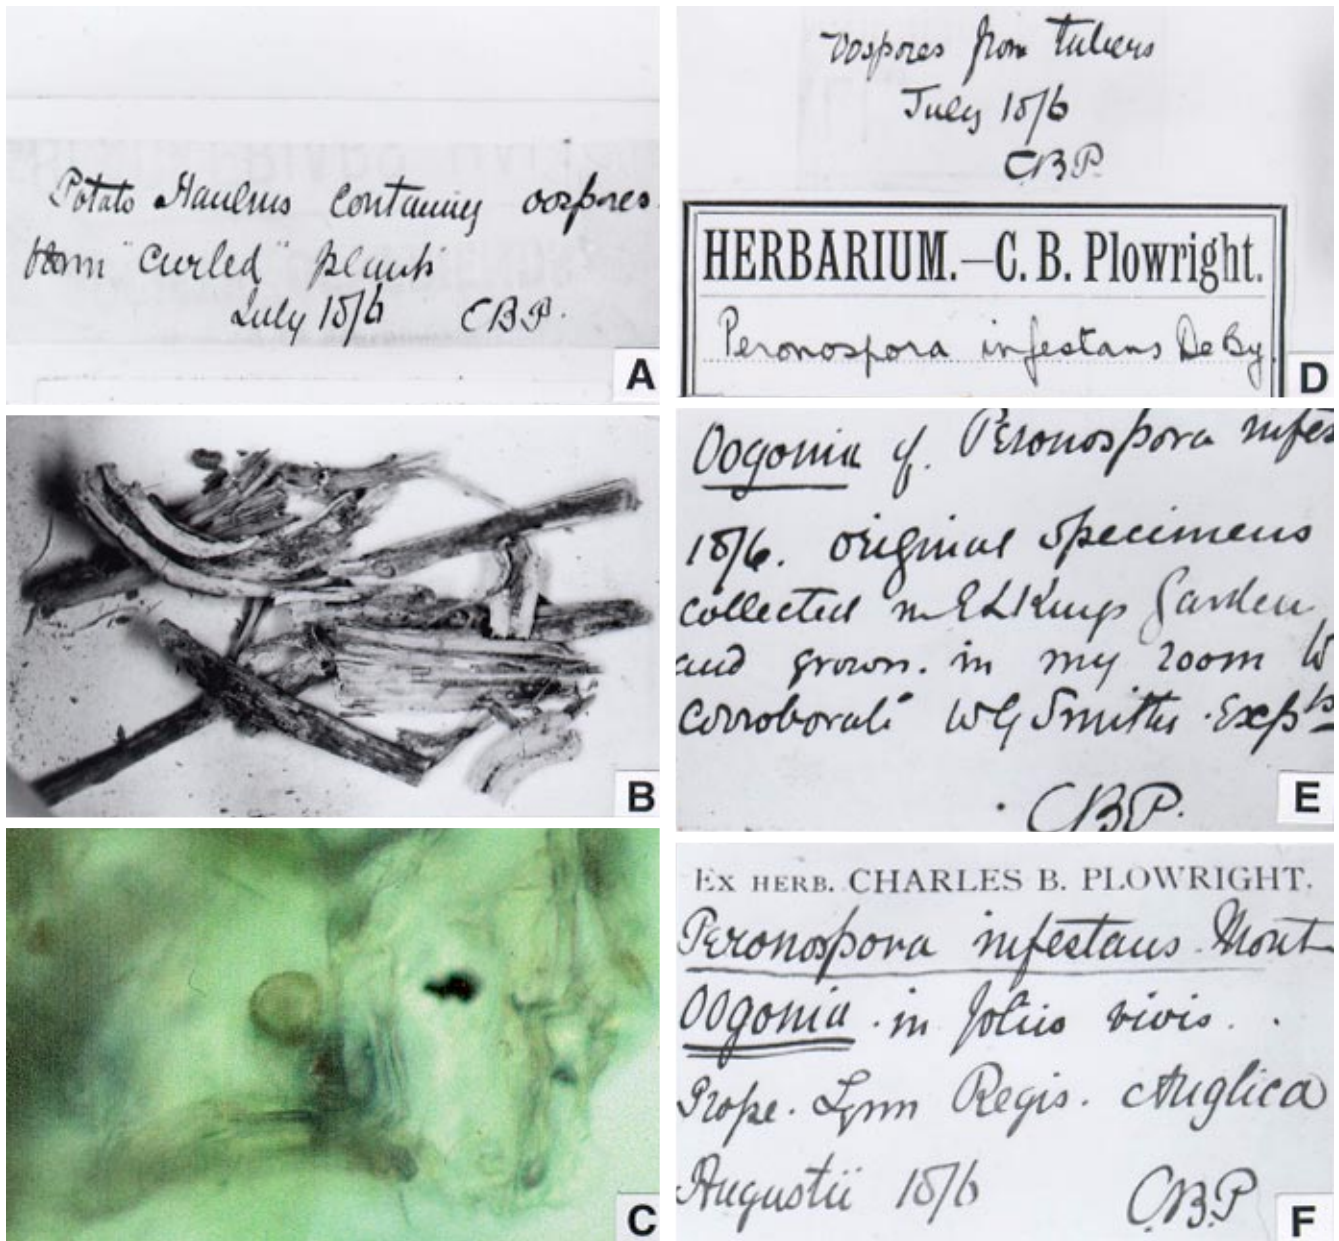 Potato Haulms containing oospores.
from "curled" plants
July 1876 CBP.
A
B
C
Oospores from tubers
July 1876
CBP.
HERBARIUM.—C. B. Plowright.
Peronospora infestans De By.
D
Oogonia of. Peronospora infes
1876. original specimens
collected in E L Kings Garden
and grown. in my room
corroborate W G Smiths Expts
CBP.
E
Ex HERB. CHARLES B. PLOWRIGHT.
Peronospora infestans. Mont
Oogonia. in foliis vivis.
Prope. Lynn Regis. Anglica
Augustii 1876 C.B.P
F